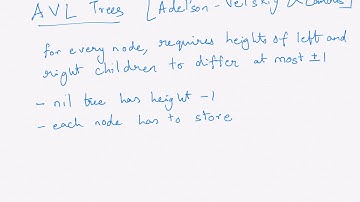 AVL Trees [Adel'son-Vel'skiy & Landis]
for every node, requires heights of left and
right children to differ at most ±1
- nil tree has height -1
- each node has to store